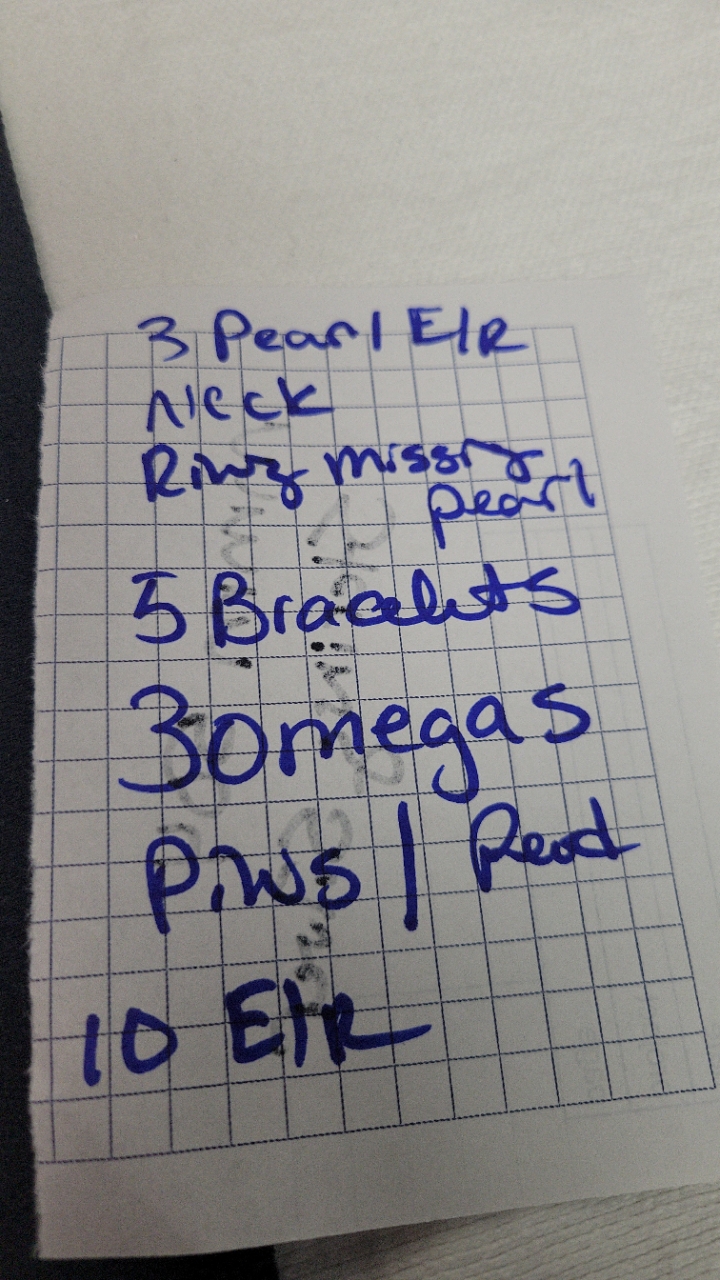 3 Pearl E/R
Neck
Ring missing
pearl
5 Bracelets
3 omegas
Pins /
10 E/R